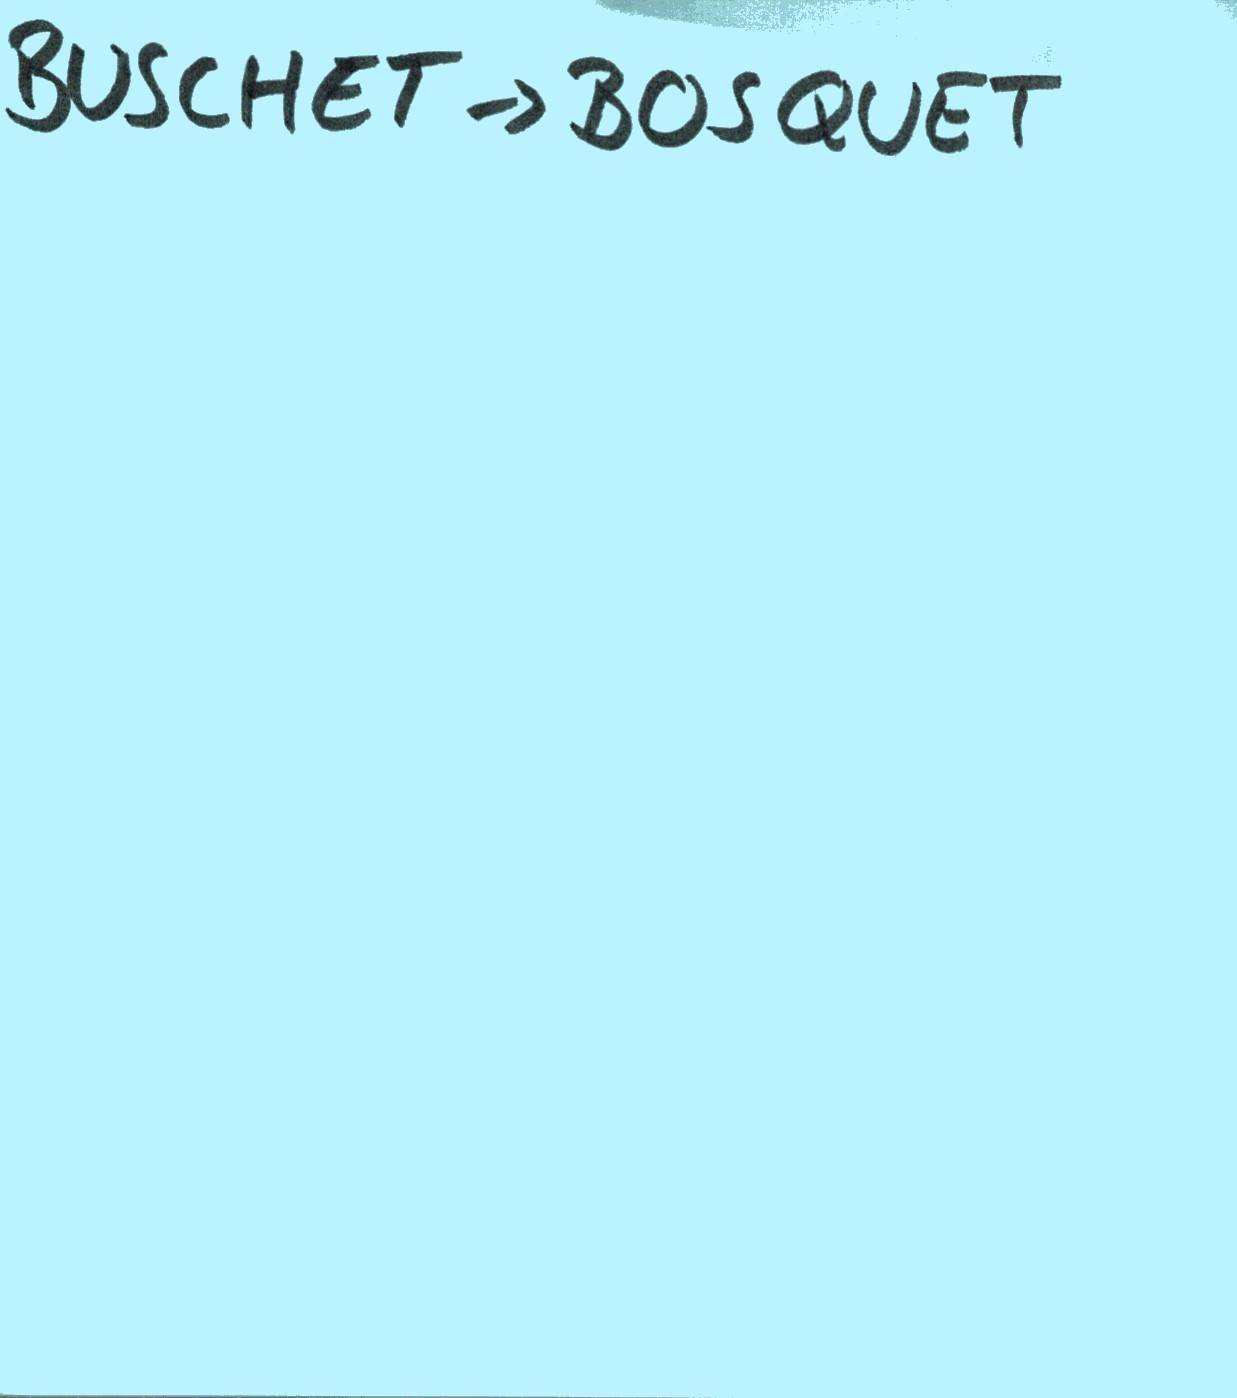 BUSCHET → BOSQUET